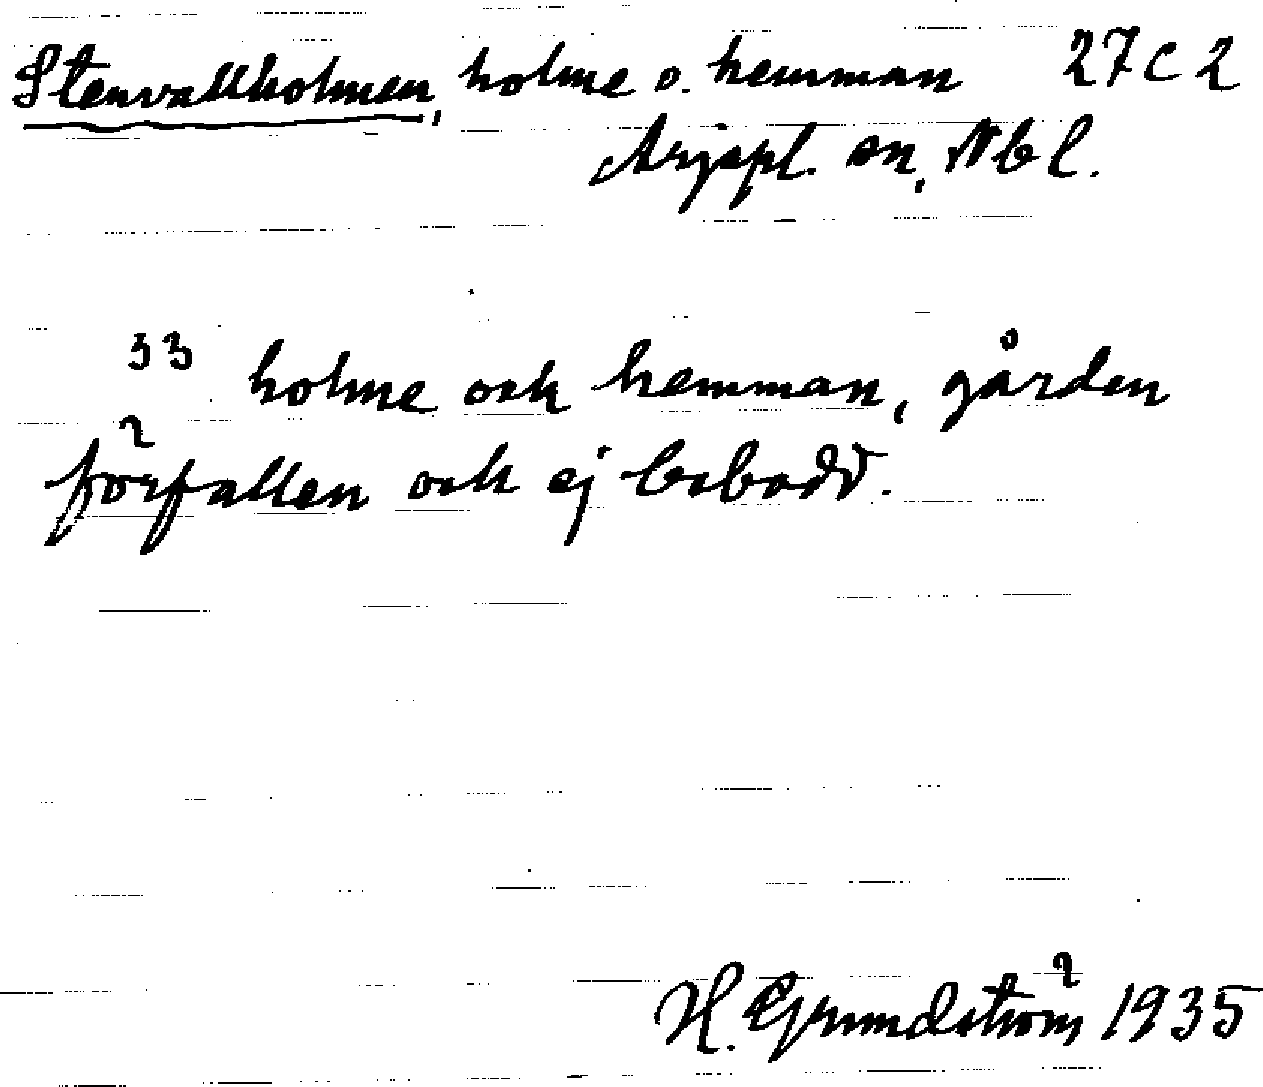 Stenvallholmen, holme o. hemman 27 C 2
Arjepl. sn, Nbl.
33 holme och hemman, gården
förfallen och ej bebodd.
H. Grundström 1935